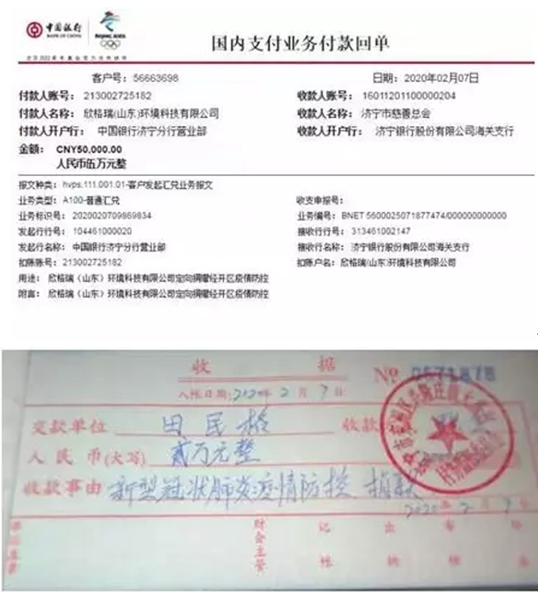 中国银行
BANK OF CHINA
BEIJING 2022
国内支付业务付款回单
客户号：56663698
日期：2020年02月07日
付款人账号：213002725182
收款人账号：16011201100000204
付款人名称：欣格瑞(山东)环境科技有限公司
收款人名称：济宁市慈善总会
付款人开户行：中国银行济宁分行营业部
收款人开户行：济宁银行股份有限公司海关支行
金额：CNY50,000.00
人民币伍万元整
报文种类：hvps.111.001.01-客户发起汇兑业务报文
业务类型：A100-普通汇兑
收支申报号：
业务标识号：2020020709869834
业务编号：BNET 5600025071877474/000000000000
发起行行号：104461000020
接收行行号：313461002147
发起行名称：中国银行济宁分行营业部
接收行名称：济宁银行股份有限公司海关支行
扣账账号：213002725182
扣账户名：欣格瑞(山东)环境科技有限公司
用途：欣格瑞（山东）环境科技有限公司定向捐赠经开区疫情防控
附言：欣格瑞（山东）环境科技有限公司定向捐赠经开区疫情防控
收 据
入帐日期：2020年2月7日
No
交款单位 田民格
收款
人民币(大写) 贰万元整
收款事由 新型冠状肺炎疫情防控 捐款
2020年2月7日
财会主管 记帐 出纳